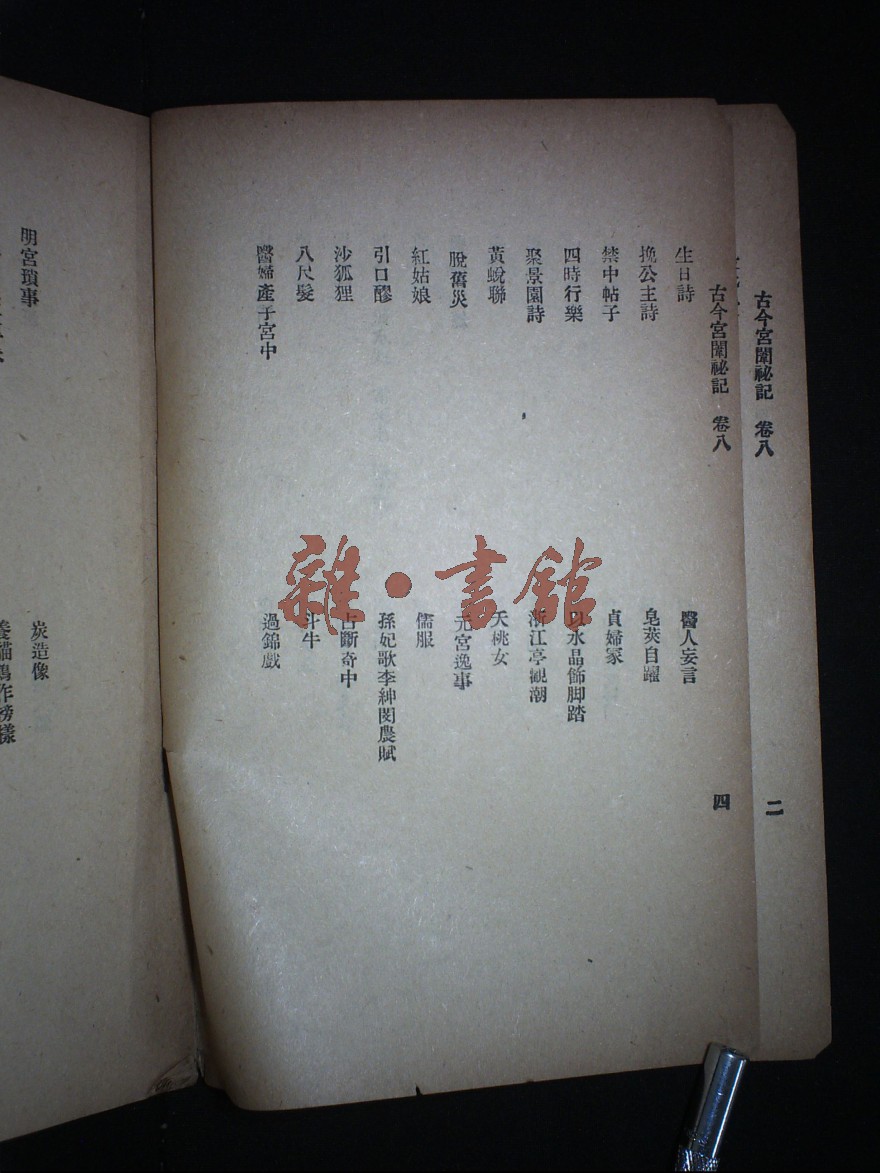 古今宮闈祕記 卷八 二
古今宮闈祕記 卷八 四
生日詩 醫人妄言
挽公主詩 皂莢自躍
禁中帖子 貞婦冢
四時行樂 以水晶飾脚踏
聚景園詩 浙江亭觀潮
黃蛻聯 天桃女
脫舊災 元宮逸事
紅姑娘 儒服
引口醪 孫妃歌李紳閔農賦
沙狐狸 占斷奇中
八尺髮 斗牛
醫婦產子宮中 過錦戲
明宮瑣事 炭造像
雜·書館